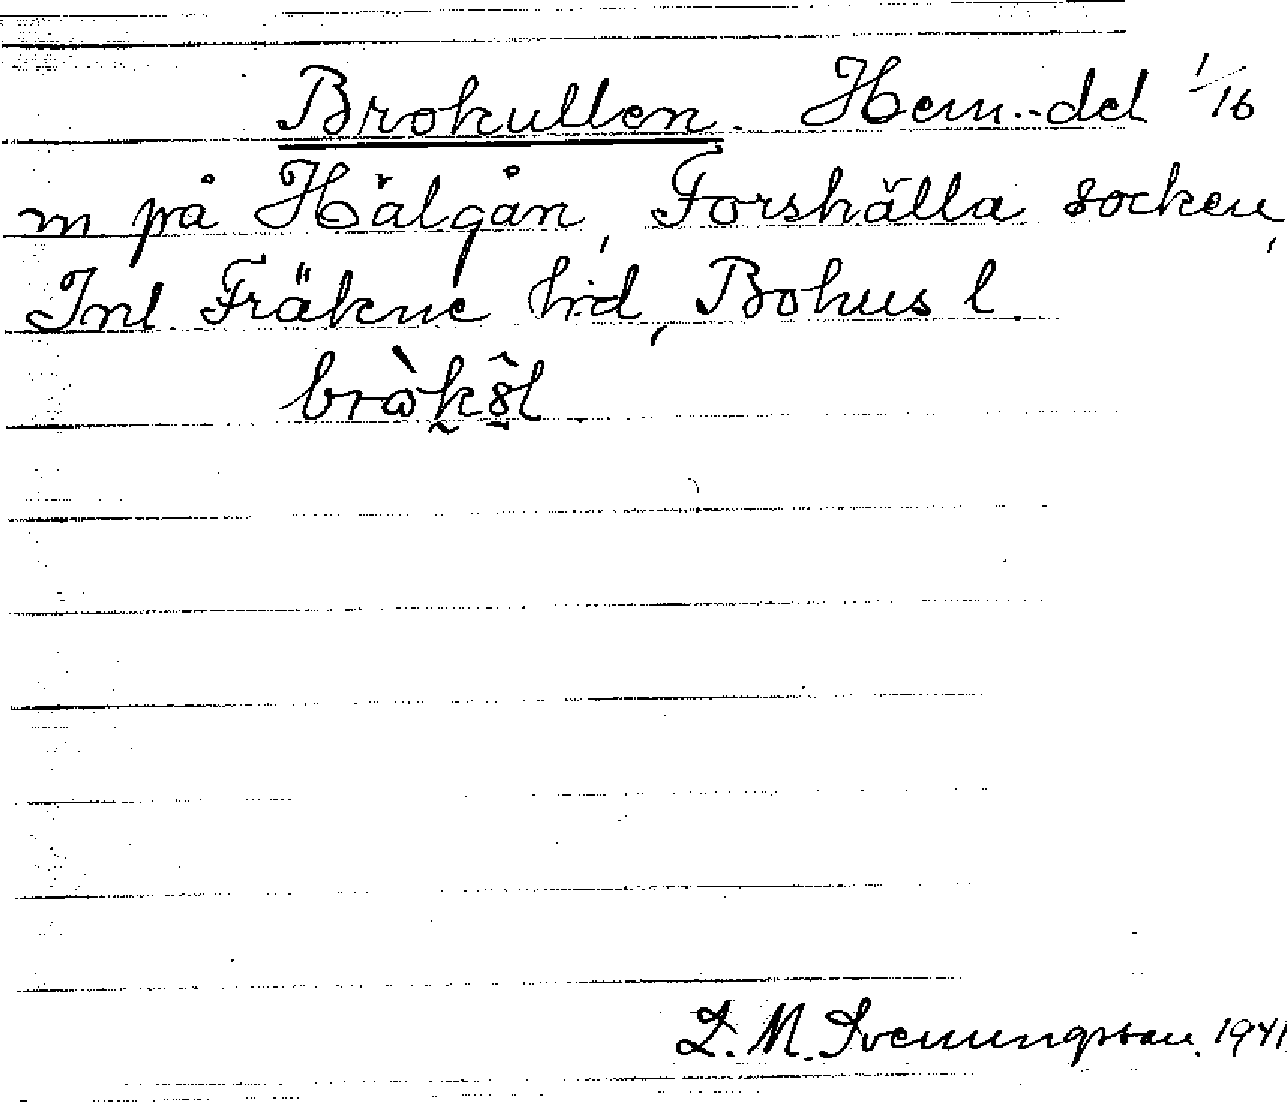 Brokullen. Hem.-del 1/16
m på Hälgån, Forshälla socken,
Inl. Fräkne hd, Bohus l.
L. M. Svenungsson. 1941